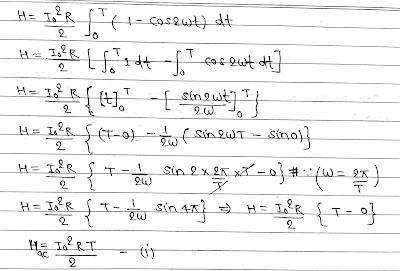 H = I₀²R/2 ∫₀ᵀ (1 - cos2wt) dt
H = I₀²R/2 [∫₀ᵀ 1 dt - ∫₀ᵀ cos2wt dt]
H = I₀²R/2 {[t]₀ᵀ - [sin2wt/2w]₀ᵀ}
H = I₀²R/2 {(T-0) - 1/2w (sin2wT - sin0)}
H = I₀²R/2 {T - 1/2w sin 2 x 2π/T x T - 0} # ∵ (w = 2π/T)
H = I₀²R/2 {T - 1/2w sin 4π} ⇒ H = I₀²R/2 {T - 0}
H_ac = I₀²RT/2 - (i)